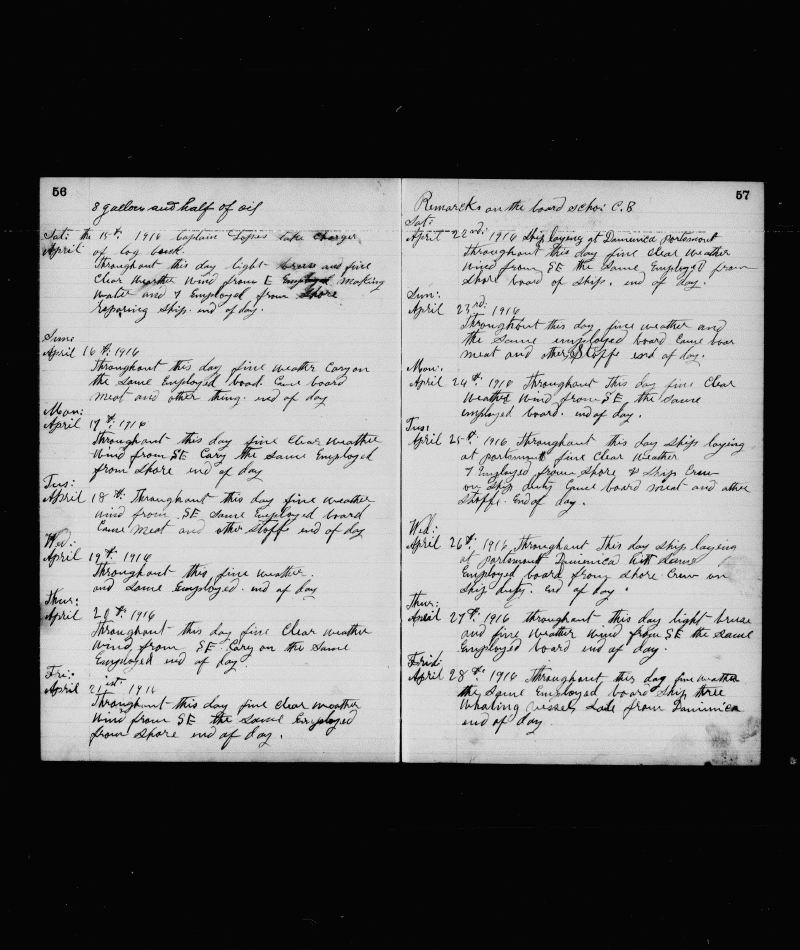 56
8 gallons and half of oil
Sat: the 15th: 1916 Captain Lopies take Charger
April of log book.
Throughout this day light and fine
Clear Weather Wind from E Employed Making
Water and 7 Employed from Shore
repairing Ship. end of day.
Sun:
April 16th: 1916
Throughout this day fine weather Cary on
the same Employed board. Came board
meat and other thing. end of day
Mon:
April 17th. 1916
Throughout this day fine Clear weather
Wind from SE Cary the same Employed
from shore end of day
Tues:
April 18th: Throughout this day fine weather
wind from SE same Employed board
Came meat and other stoffs end of day
Wed:
April 19th. 1916
Throughout this fine weather
and same Employed. end of day
Thur:
April 20th. 1916
Throughout this day fine Clear weather
Wind from SE. Cary on the same
Employed end of day.
Fri:
April 21ist. 1916
Throughout this day fine clear weather
Wind from SE the same Employed
from shore end of day.
57
Remarcks on the board scho: C. B
Sat:
April 22nd: 1916 Ship laying at Damenica Portsmout
throughout this day fine clear Weather
Wind from SE the same Employed from
shore board of ship. end of day.
Sun:
April 23rd: 1916
Throughout this day fine weather and
the same employed board Came boar
meat and other Stoffs end of day.
Mon:
April 24th. 1916 Throughout This day fine Clear
Weather Wind from SE the same
employed board. end of day.
Tus:
April 25th. 1916 Throughout this day Ship laying
at portsmout fine Clear Weather
7 Employed from Shore & Ship Crew
on Ship duty Came board meat and other
Stoffs. End of day.
Wed:
April 26th: 1916 Throughout This day Ship laying
at Portsmout Damenica
Employed board from shore Crew on
Ship duty. End of day.
Thur:
April 27th: 1916 throughout this day light brese
and fine Weather Wind from SE the same
Employed board end of day.
Frid:
April 28th. 1916 Throughout this day fine weather
the same Employed board Ship three
Whaling vessels Sale from Daminica
end of day